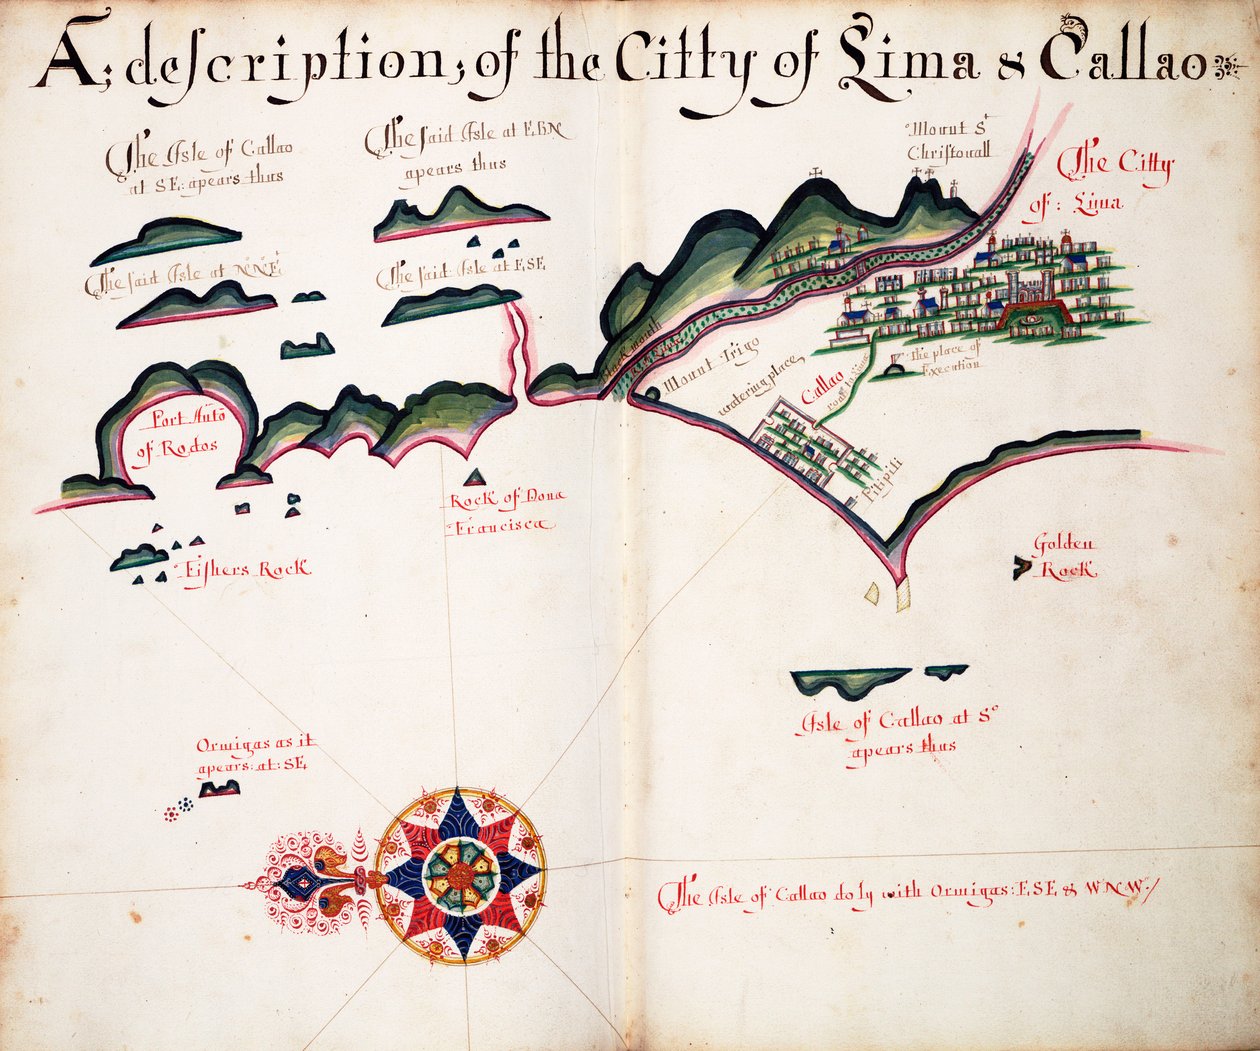 A; description, of the Citty of Lima & Callao
The Isle of Callao
at SE: apears thus
The said Isle at EBN
apears thus
Mount St
Christouall
The Citty
of: Lima
The said Isle at NNE
The said Isle at ESE
Mount Trigo
watering place
Callao
road to Lima
The place of
Execution
Port Auto
of Rodos
Pitipiti
Rock of Dona
Francisca
Fishers Rock
Golden
Rock
Isle of Callao at So
apears thus
Ormigas as it
apears: at: SE
The Isle of Callao do ly with Ormigas: ESE & WNW:/